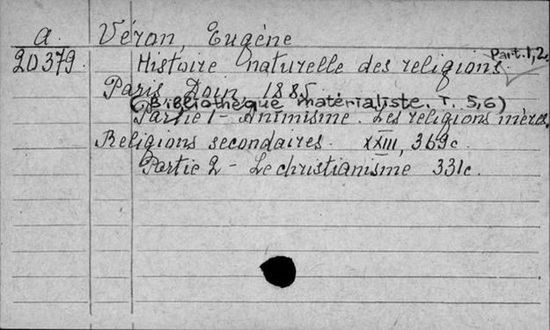 a. Véron, Eugène
20379. Histoire naturelle des religions. Part. 1, 2.
Paris, Doin, 1885.
(Bibliothèque matérialiste. T. 5,6)
Partie 1 - Animisme. Les religions mères,
Religions secondaires. XXIII, 369c.
Partie 2 - Le christianisme 331c.